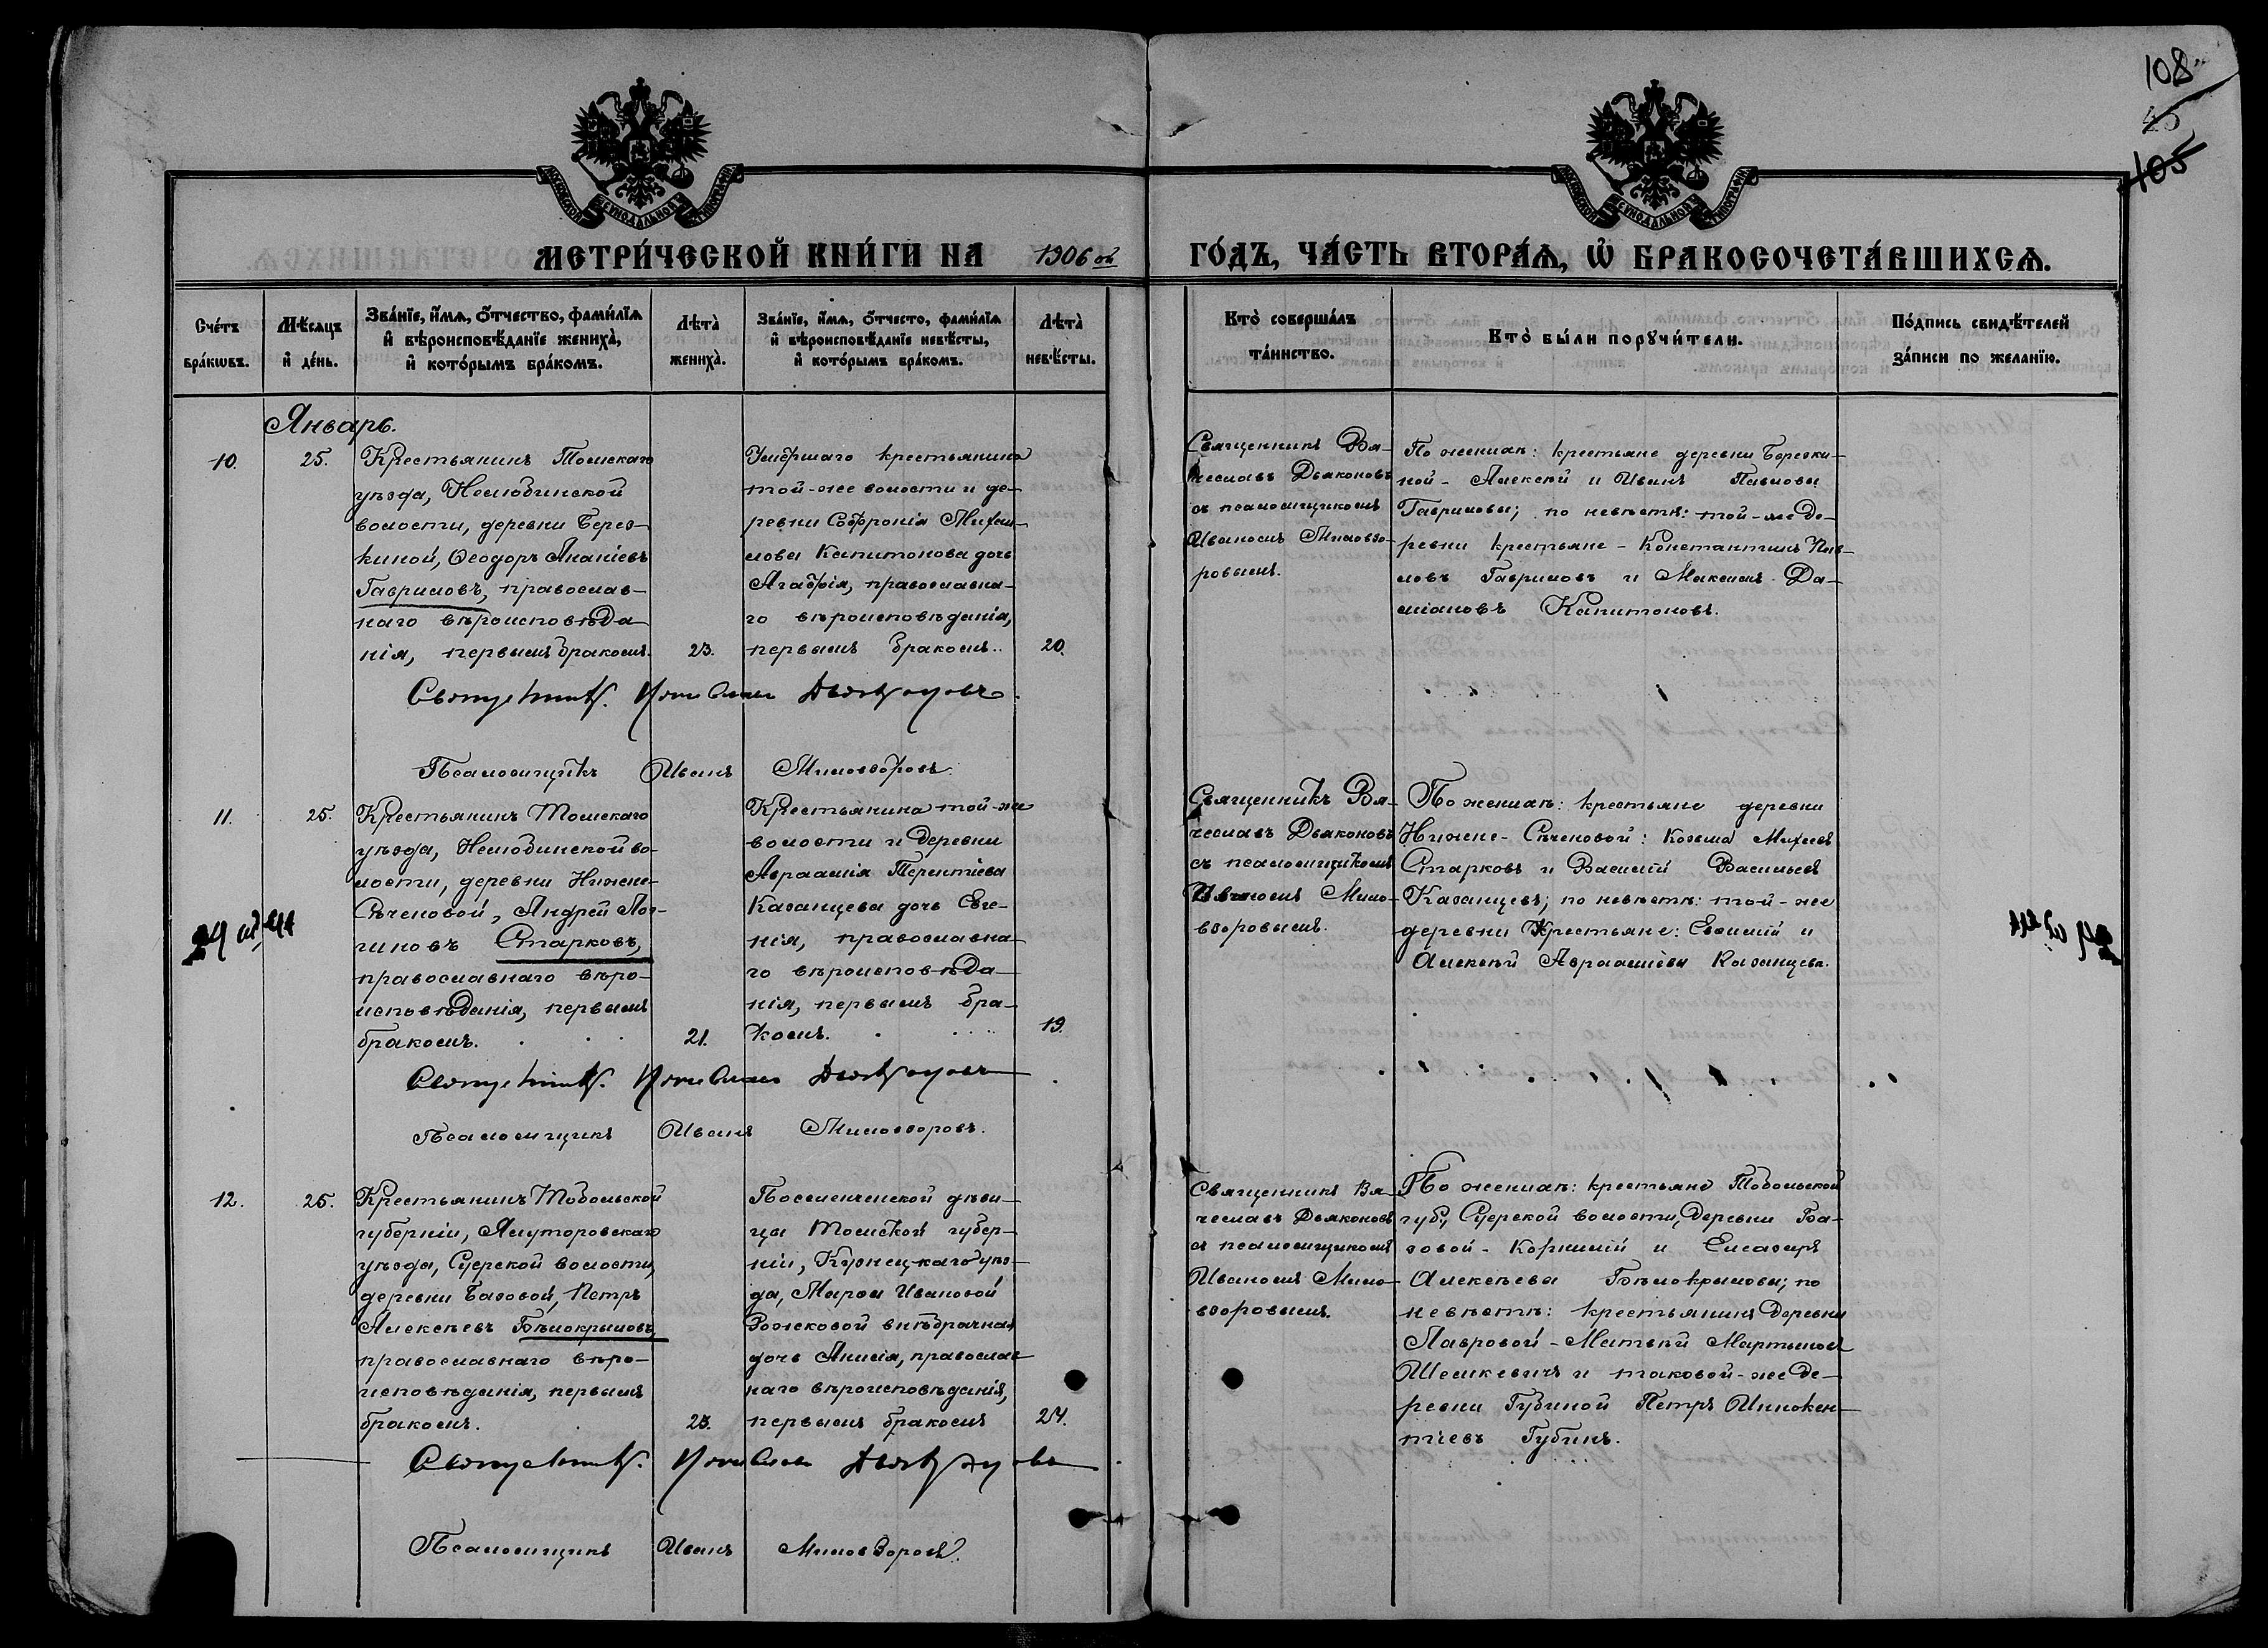 108
45
105
МОСКОВСКОЙ СѴНОДАЛЬНОЙ ТИПОГРАФІИ
МОСКОВСКОЙ СѴНОДАЛЬНОЙ ТИПОГРАФІИ
МЕТРИ́ЧЕСКОЙ КНИ́ГИ НА 1906 ой ГО́ДЪ, ЧА́СТЬ ВТОРА́Ѧ, Ѽ БРАКОСОЧЕТА́ВШИХСѦ.
Сче́тъ
бра́кѡвъ.
Мѣ́сѧцъ
и҆ де́нь.
Зва́нїе, и҆́мѧ, ѻ҆́тчество, фами́лїѧ
и҆ вѣроисповѣ́данїе жениха̀,
и҆ кото́рымъ бра́комъ.
Лѣта̀
жениха̀.
Зва́нїе, и҆́мѧ, ѻ҆́тчесто, фами́лїѧ
и҆ вѣроисповѣ́данїе невѣ́сты,
и҆ кото́рымъ бра́комъ.
Лѣта̀
невѣ́сты.
Кто̀ соверша́лъ
та́инство.
Кто̀ бы́ли порꙋчи́тели.
По́дпись свидѣ́телей
за́писи по желанїю.
Январь.
10.
25.
Крестьянинъ Томскаго
уѣзда, Нелюбинской
волости, деревни Берез-
киной, Ѳеодоръ Ананіевъ
Гавриловъ, православ-
наго вѣроисповѣда-
нія, первымъ бракомъ.
23.
Умершаго крестьянина
той-же волости и де-
ревни Софронія Михаи-
лова Капитонова дочь
Агафія, православна-
го вѣроисповѣданія,
первымъ бракомъ.
20.
Священникъ Вя-
чеславъ Дьяконовъ
съ псаломщикомъ
Иваномъ Миловзо-
ровымъ.
По женихѣ: крестьяне деревни Березки-
ной - Алексѣй и Иванъ Павловы
Гавриловы; по невѣстѣ: той-же де-
ревни крестьяне - Константинъ Пав-
ловъ Гавриловъ и Максимъ Да-
міановъ Капитоновъ.
Священникъ. Вячеславъ Дьяконовъ.
Псаломщикъ Иванъ Миловзоровъ.
11.
25.
Крестьянинъ Томскаго
уѣзда, Нелюбинской во-
лости, деревни Нижне-
Сѣченовой, Андрей Лог-
гиновъ Старковъ,
православнаго вѣро-
исповѣданія, первымъ
бракомъ.
21.
Крестьянина той-же
волости и деревни
Авраамія Терентіева
Казанцева дочь Евге-
нія, православна-
го вѣроисповѣда-
нія, первымъ бра-
комъ.
19.
Священникъ Вя-
чеславъ Дьяконовъ
съ псаломщикомъ
Иваномъ Мило-
взоровымъ.
По женихѣ: крестьяне деревни
Нижне-Сѣченовой: Козьма Михеевъ
Старковъ и Василій Васильевъ
Казанцевъ; по невѣстѣ: той-же
деревни крестьяне: Евфимій и
Алексѣй Авраамовы Казанцевы.
Священникъ. Вячеславъ Дьяконовъ
Псаломщикъ Иванъ Миловзоровъ.
12.
25.
Крестьянинъ Тобольской
губерніи, Ялуторовскаго
уѣзда, Суерской волости,
деревни Базовой, Петръ
Алексѣевъ Бѣлокрыловъ,
православнаго вѣро-
исповѣданія, первымъ
бракомъ.
23.
Поселенческой дѣви-
цы Томской губер-
ніи, Кузнецкаго уѣз-
да, Марфы Ивановой
Рожковой внѣбрачная
дочь Анисія, православ-
наго вѣроисповѣданія,
первымъ бракомъ
24.
Священникъ Вя-
чеславъ Дьяконовъ
съ псаломщикомъ
Иваномъ Мило-
взоровымъ.
По женихѣ: крестьяне Тобольской
губ., Суерской волости, деревни Ба-
зовой - Корнилій и Елеазаръ
Алексѣевы Бѣлокрыловы; по
невѣстѣ: крестьянинъ деревни
Лавровой - Матвѣй Мартыновъ
Шемкевичъ и таковой-же де-
ревни Губиной Петръ Иннокен-
тіевъ Губинъ.
Священникъ. Вячеславъ Дьяконовъ
Псаломщикъ Иванъ Миловзоровъ.